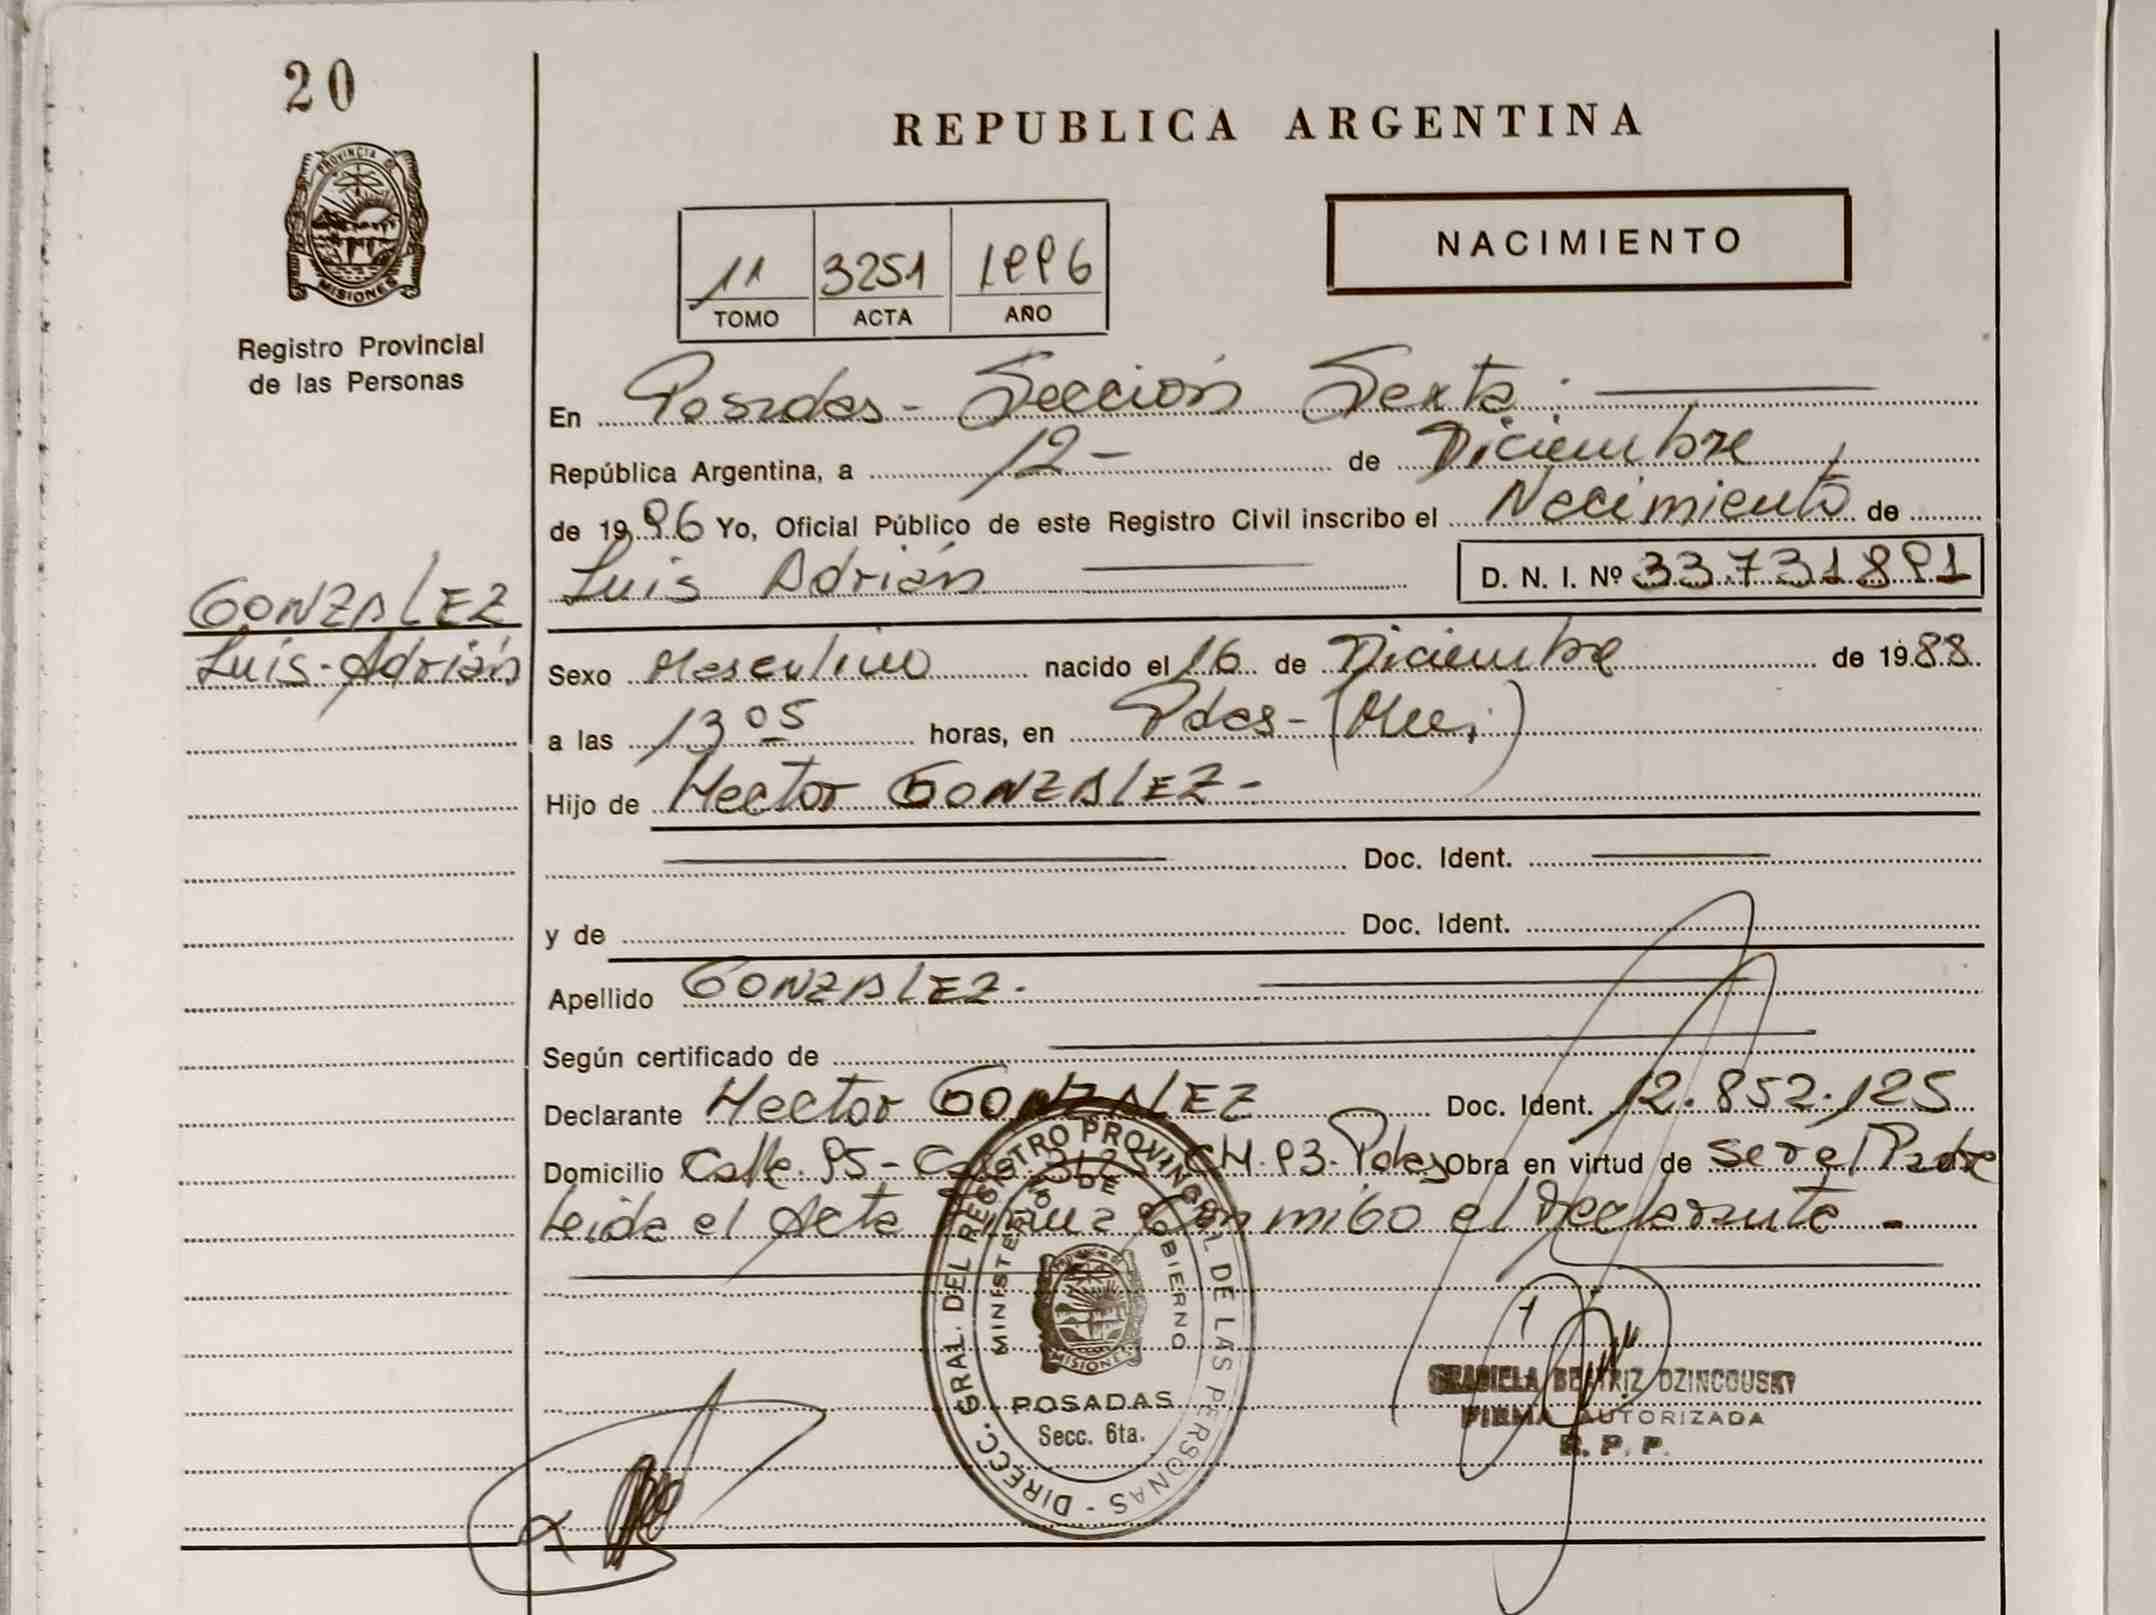 20
REPUBLICA ARGENTINA
PROVINCIA D
MISIONES
Registro Provincial
de las Personas
11 3251 1996
TOMO ACTA AÑO
NACIMIENTO
En Posadas - Sección Sexta.
República Argentina, a 12 - de Diciembre
de 1996 Yo, Oficial Público de este Registro Civil inscribo el Nacimiento de
Luis Adrián D. N. I. Nº 33.731891
GONZALEZ
Luis-Adrián
Sexo Masculino nacido el 16 de Diciembre de 1988.
a las 13 05 horas, en Pdas-
Hijo de Hector GONZALEZ-
Doc. Ident.
y de Doc. Ident.
Apellido GONZALEZ.
Según certificado de
Declarante Hector GONZALEZ Doc. Ident. 12.852.125
Domicilio Calle 95- CH.93-Pdas Obra en virtud de ser el Padre
Leida el Acta conmigo el Declarante -
DIRECC. GRAL. DEL REGISTRO PROVINCIAL DE LAS PERSONAS -
MINISTERIO DE GOBIERNO
MISIONES
POSADAS
Secc. 6ta.
GRACIELA BEATRIZ DZINCOUSKY
FIRMA AUTORIZADA
R. P. P.